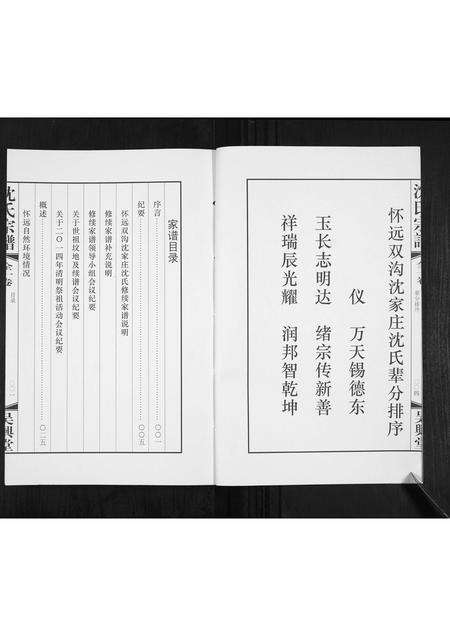 沈氏宗譜
怀远双沟沈家庄沈氏辈分排序
仪 万天锡德东
玉长志明达 绪宗传新善
祥瑞辰光耀 润邦智乾坤
吴興堂
家谱目录
序言……〇〇一
纪要……〇〇五
怀远双沟沈家庄沈氏修续家谱说明
修续家谱补充说明
修续家谱领导小组会议纪要
关于世祖坟地及续谱会议纪要
关于二〇一四年清明祭祖活动会议纪要
概述……〇二五
怀远自然环境情况
沈氏宗譜
全一卷
目录
吴興堂